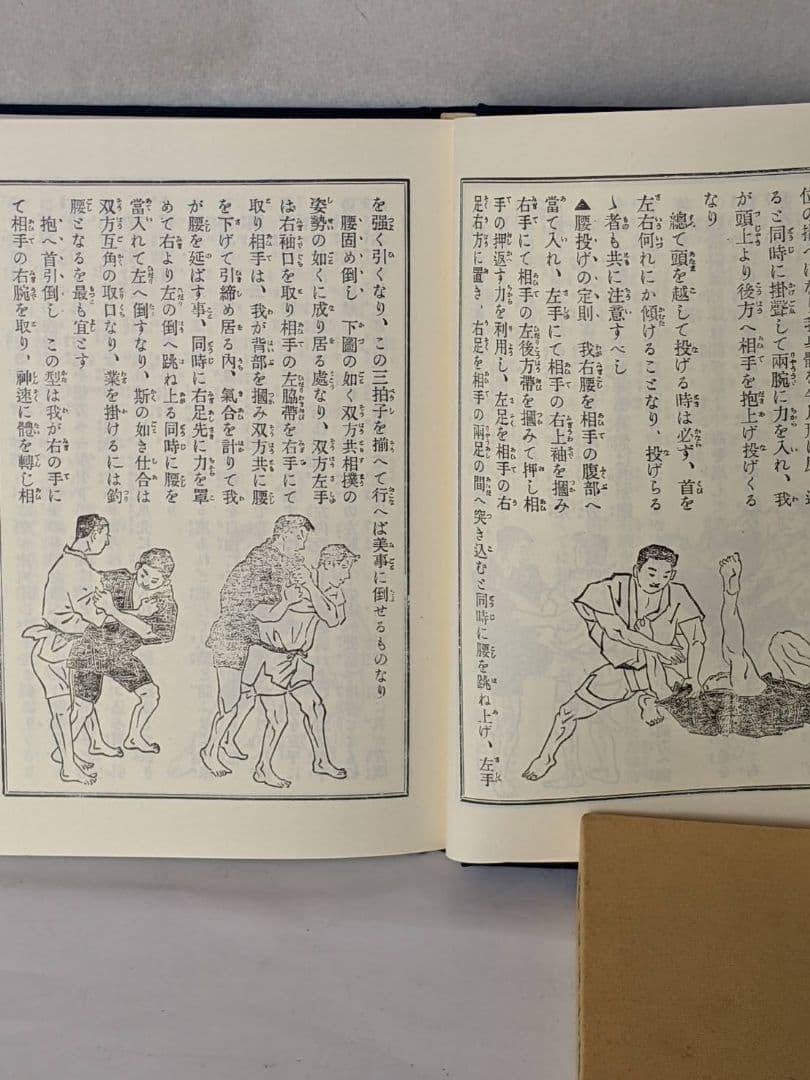 位の構へ
ると同時に掛聲して兩腕に力を入れ、我
が頭上より後方へ相手を抱上げ投げくる
なり
總て頭を越して投げる時は必ず、首を
左右何れにか傾けることなり、投げらる
ゝ者も共に注意すべし
▲腰投げの定則 我右腰を相手の腹部へ
當て入れ、左手にて相手の右上袖を摑み
右手にて相手の左後方帶を摑みて押し相
手の押返す力を利用し、左足を相手の右
足右方に置き、右足を相手の兩足の間へ突き込むと同時に腰を跳ね上げ、左手
を强く引くなり、この三拍子を揃へて行へば美事に倒せるものなり
腰固め倒し 下圖の如く双方共相撲の
姿勢の如くに成り居る處なり、双方左手
は右袖口を取り相手の左脇帶を右手にて
取り相手は、我が背部を摑み双方共に腰
を下げて引締め居る內、氣合を計りて我
が腰を延ばす事、同時に右足先に力を罩
めて右より左の倒へ跳ね上る同時に腰を
當入れて左へ倒すなり、斯の如き仕合は
双方互角の取口なり、業を掛けるには釣
腰となるを最も宜とす
抱へ首引倒し この型は我が右の手に
て相手の右腕を取り、神速に體を轉じ相